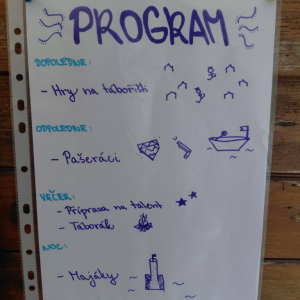 PROGRAM
DOPOLEDNE:
- Hry na tábořišti
ODPOLEDNE:
- Pašeráci
VEČER:
- Příprava na talent
- Táborák
NOC:
- Majáky